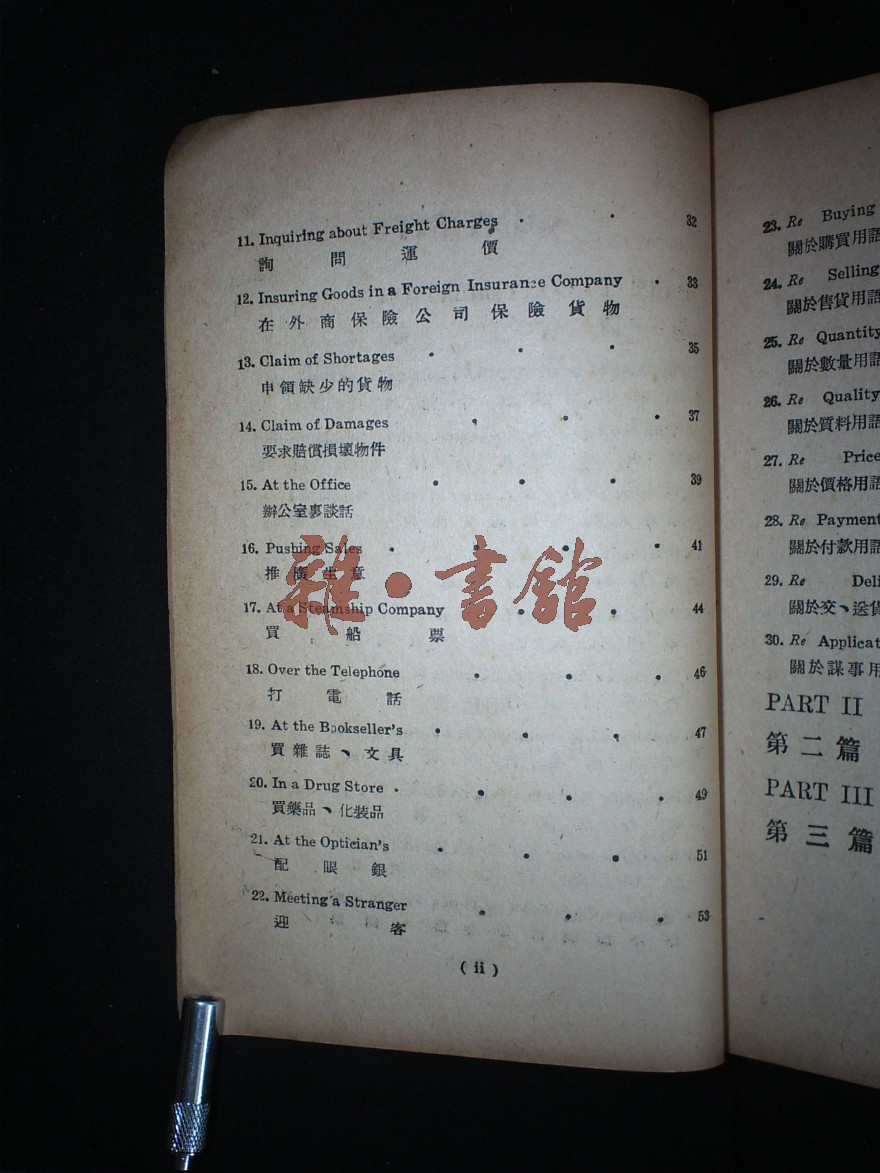 11. Inquiring about Freight Charges . . 32
詢問運價
12. Insuring Goods in a Foreign Insurance Company . 33
在外商保險公司保險貨物
13. Claim of Shortages . . . 35
申領缺少的貨物
14. Claim of Damages . . . 37
要求賠償損壞物件
15. At the Office . . . 39
辦公室裏談話
16. Pushing Sales . . . . 41
推廣生意
17. At a Steamship Company . . 44
買船票
18. Over the Telephone . . . 46
打電話
19. At the Bookseller's . . . 47
買雜誌、文具
20. In a Drug Store . . . . 49
買藥品、化裝品
21. At the Optician's . . . 51
配眼銀
22. Meeting a Stranger . . . 53
迎客
( ii )
23. Re Buying
關於購買用語
24. Re Selling
關於售貨用語
25. Re Quantity
關於數量用語
26. Re Quality
關於質料用語
27. Re Price
關於價格用語
28. Re Payment
關於付款用語
29. Re Deli
關於交、送貨
30. Re Applicat
關於謀事用
PART II
第二篇
PART III
第三篇
雜·書館